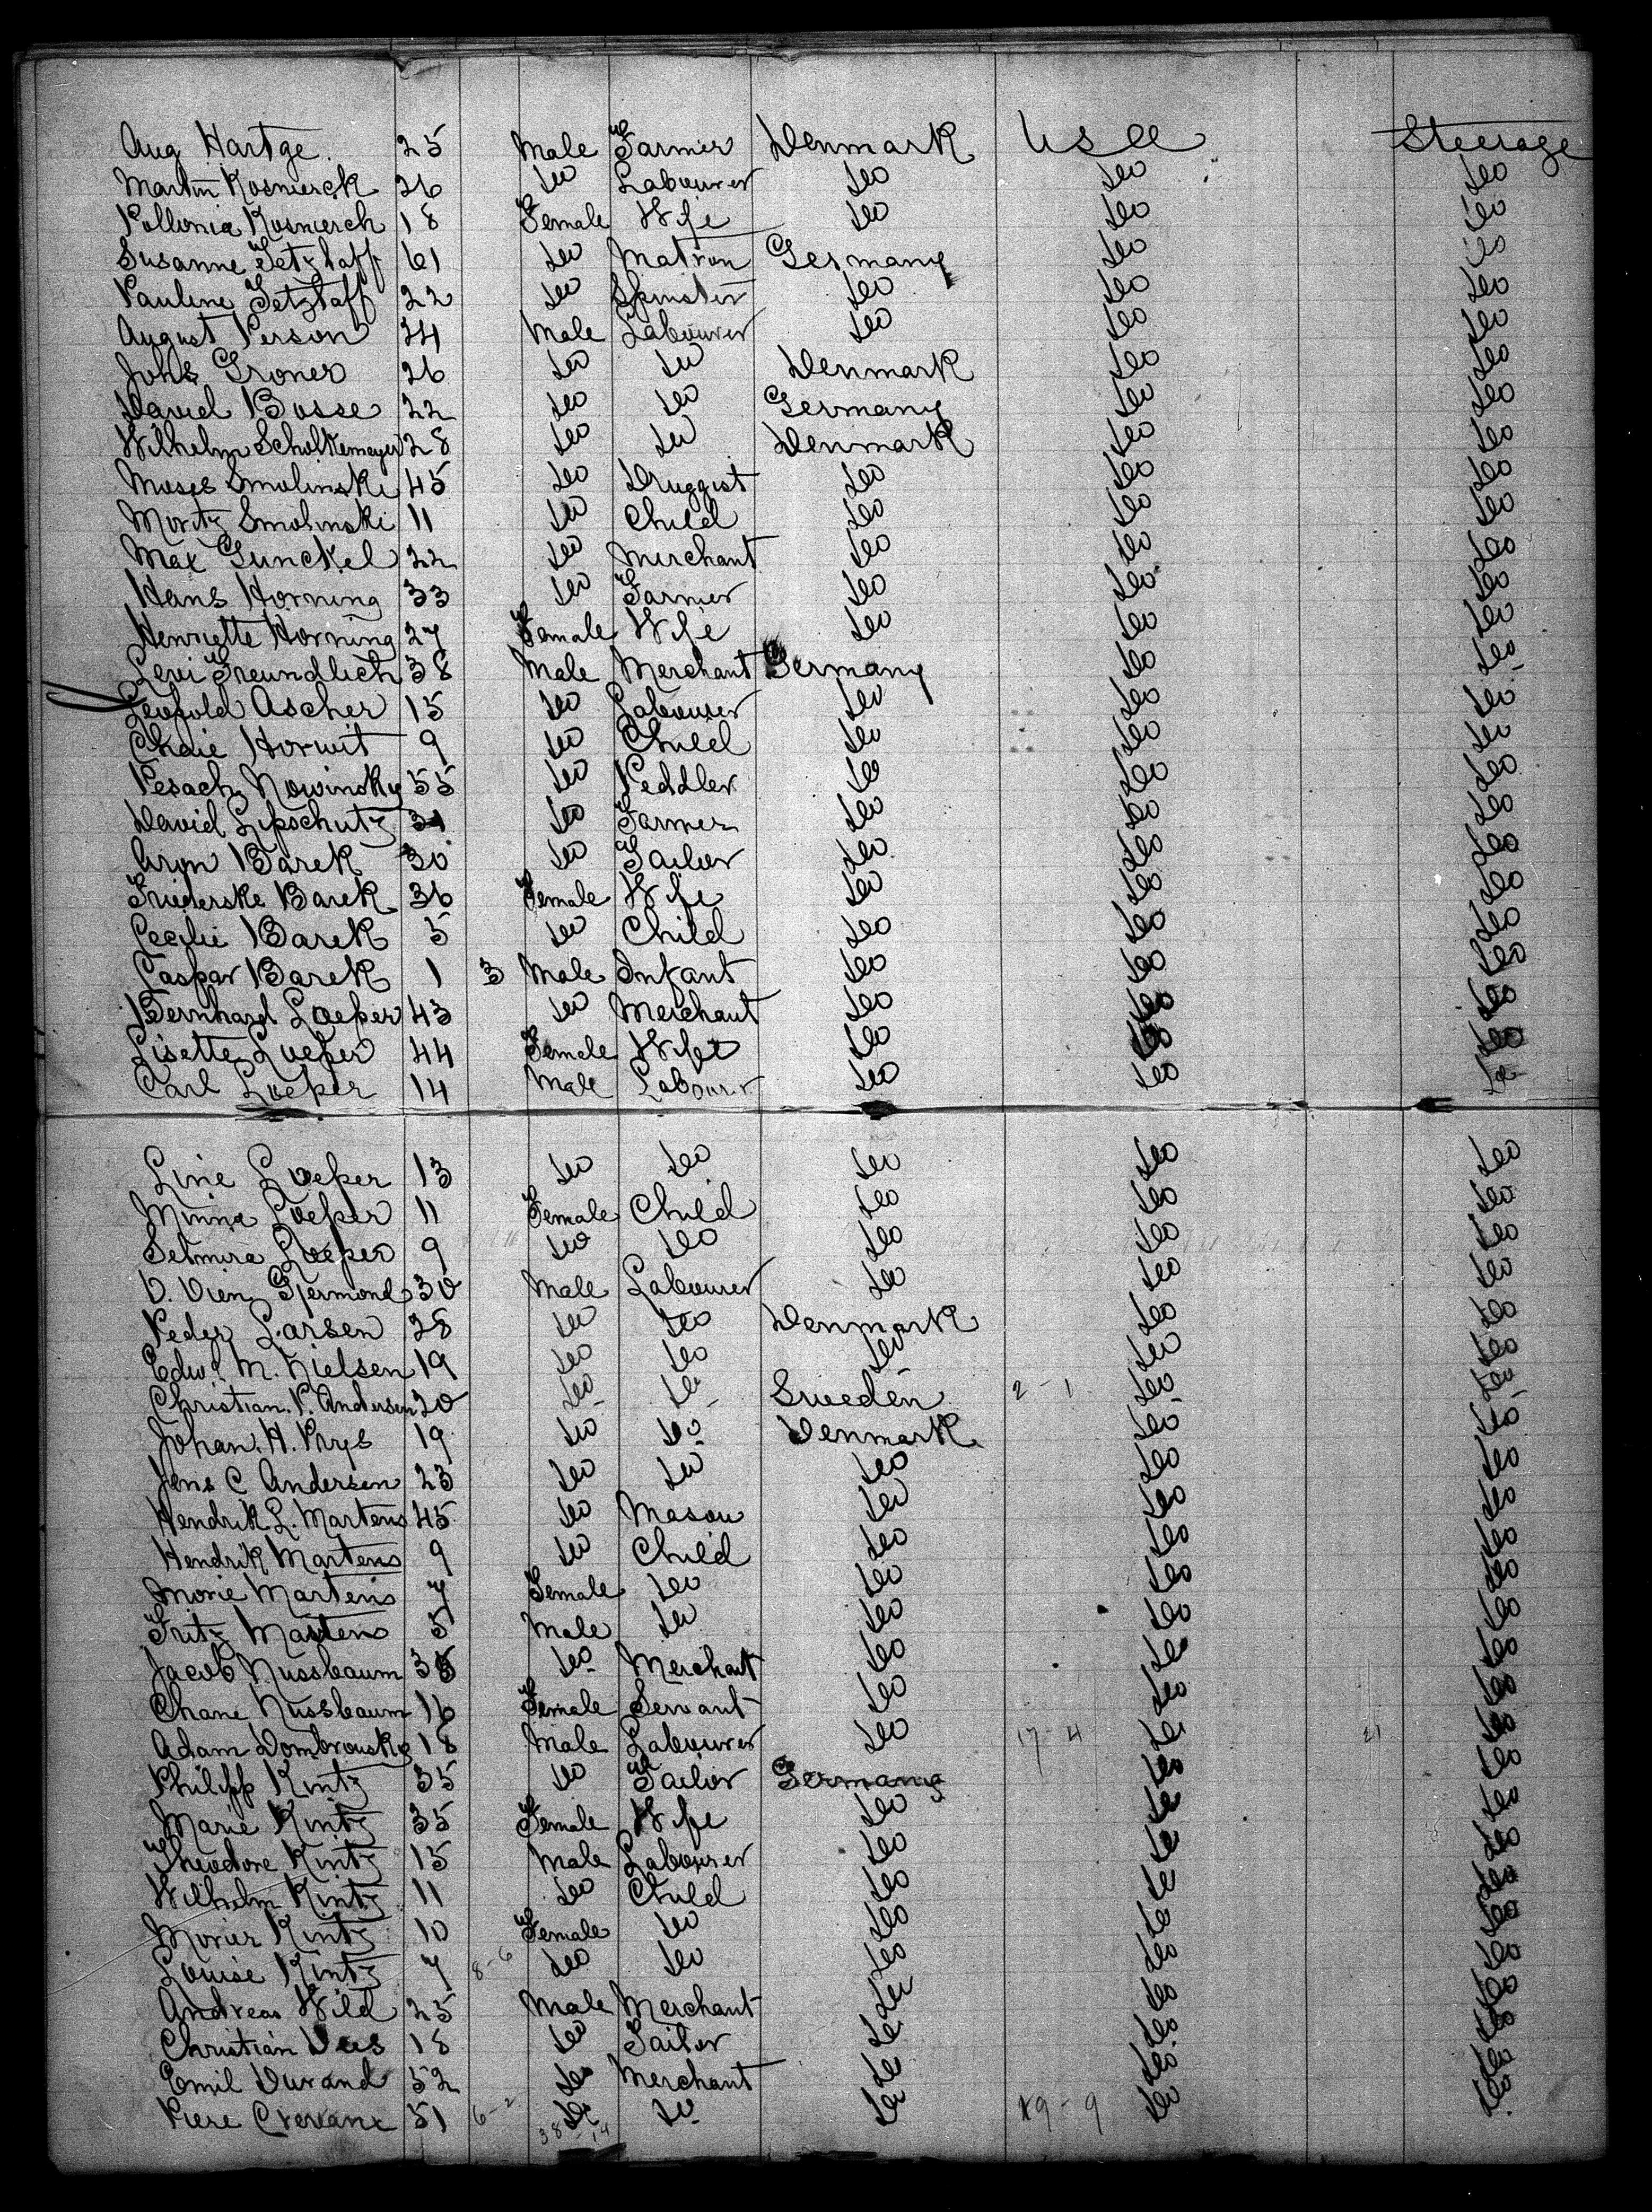 Aug Hartge. 25 Male Farmer Denmark USA Steerage
Martin Kosmierck 26 do Labourer do do do
Pollonia Kosmierck 18 Female Wife do do do
Susanne Tetzlaff 61 do Matron Germany do do
Pauline Tetzlaff 22 do Spinster do do do
August Person 24 Male Labourer do do do
Johs Groner 26 do do Denmark do do
David Bosse 22 do do Germany do do
Wilhelm Scholkemeyer 28 do do Denmark do do
Moses Smolinski 45 do Druggist do do do
Moritz Smolinski 11 do Child do do do
Max Gunckel 22 do Merchant do do do
Hans Horning 33 do Farmer do do do
Henriette Horning 27 Female Wife do do do
Levi Freundlich 38 Male Merchant Germany do do
Leopold Ascher 15 do Labourer do do do
Chaie Horwit 9 do Child do do do
Pesach Nowinsky 55 do Peddler do do do
David Lipschutz do Farmer do do do
Aron Barek 30 do Tailor do do do
Friederske Barek 36 Female Wife do do do
Cecilie Barek 5 do Child do do do
Caspar Barek 1 3 Male Infant do do do
Bernhard Loeper 43 do Merchant do do do
Lisette Loeper 44 Female Wife do do do
Carl Loeper 14 Male Labourer do do do
Line Loeper 13 do do do do do
Minna Loeper 11 Female Child do do do
Selmira Loeper 9 do do do do do
V. Vien Gjermonds 30 Male Labourer do do do
Peder Larsen 28 do do Denmark do do
Edwd M. Nielsen 19 do do do do do
Christian. P. Andersen 20 do do Sweden 2-1 do do
Johan. H. Prys 19 do do Denmark do do
Jens C Andersen 23 do do do do do
Hendrik L. Martens 45 do Mason do do do
Hendrik Martens 9 do Child do do do
Morie Martens 7 Female do do do do
Fritz Martens 5 Male do do do do
Jacob Nussbaum 38 do Merchant do do do
Chane Nussbaum 16 Female Servant do do do
Adam Dombrousky 18 Male Labourer do 17-4 do 21 do
Philipp Kintz 35 do Tailor Germany do do
Marie Kintz 35 Female Wife do do do
Theodore Kintz 15 Male Labourer do do do
Wilhelm Kintz 11 do Child do do do
Morier Kintz 10 Female do do do do
Louise Kintz 7 8-6 do do do do do
Andreas Wild 25 Male Merchant do do do
Christian 18 do Tailor do do do
Emil Durand 52 do Merchant do do do
Piere 51 6-2 do do do 19-9 do do
38-14